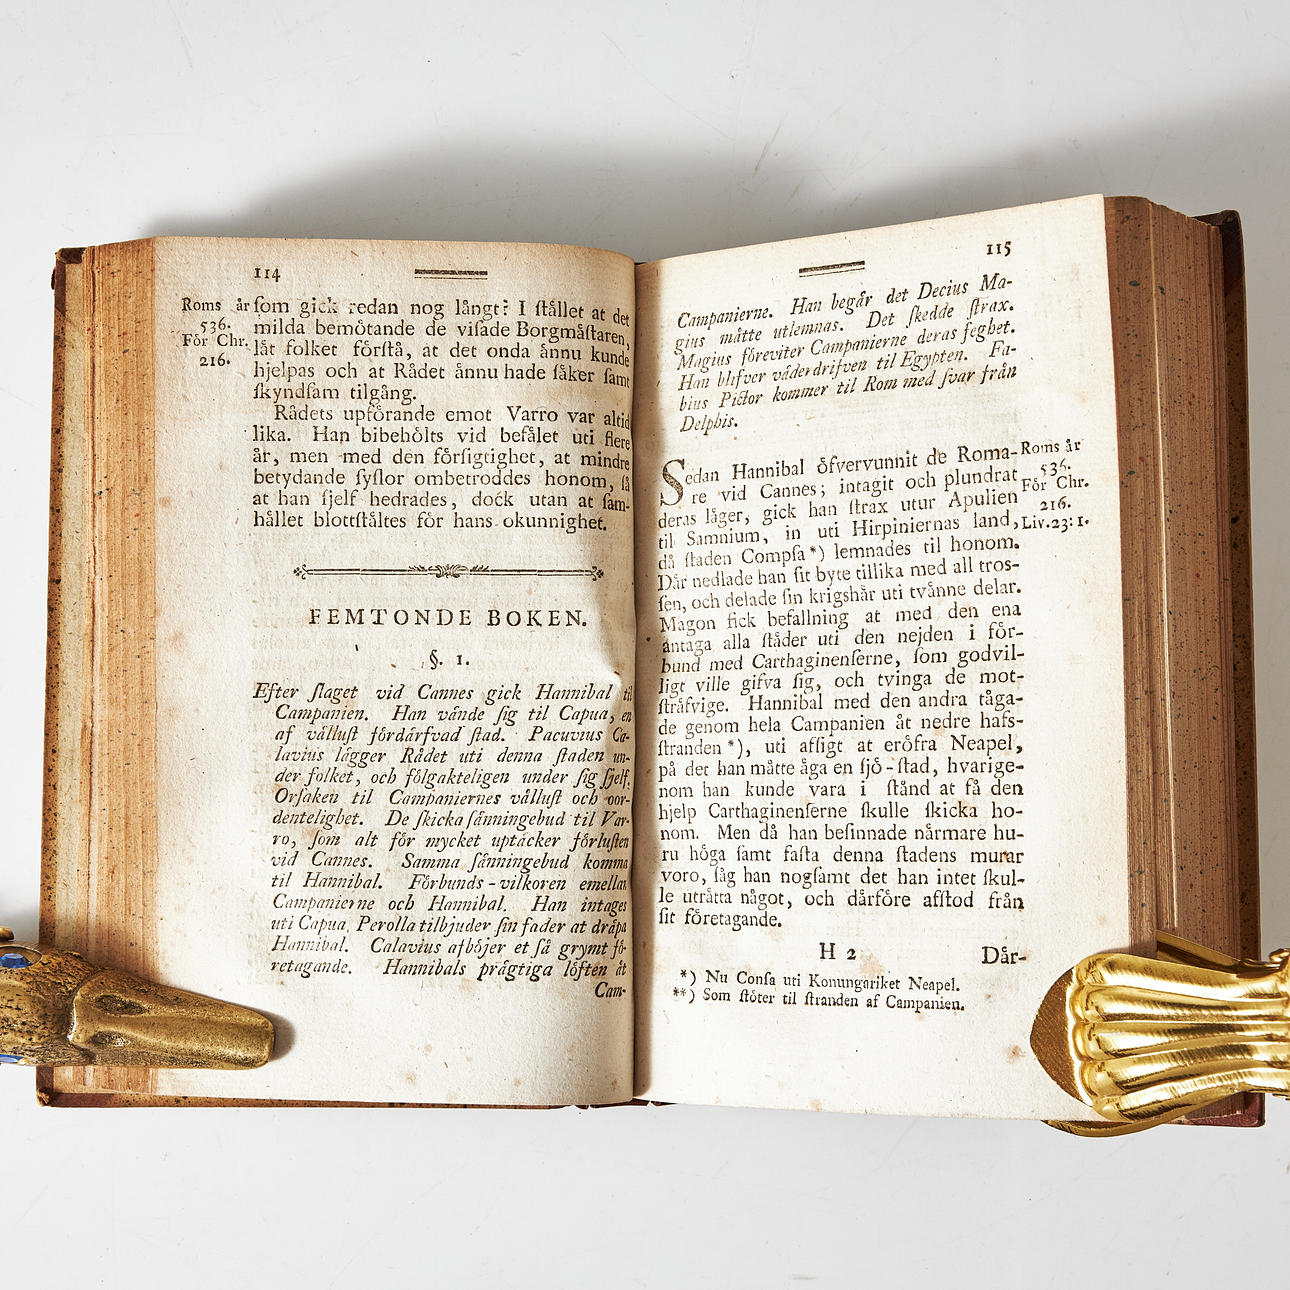 114
Roms år
536.
För Chr.
216.
ſom gick redan nog långt: I ſtället at det
milda bemötande de viſade Borgmäſtaren,
låt folket förſtå, at det onda ännu kunde
hjelpas och at Rådet ännu hade ſäker ſamt
ſkyndſam tilgång.
Rådets upförande emot Varro var altid
lika. Han bibehölts vid befälet uti flere
år, men med den förſigtighet, at mindre
betydande ſyſlor ombetroddes honom, ſå
at han ſjelf hedrades, dock utan at ſam-
hället blottſtältes för hans okunnighet.
FEMTONDE BOKEN.
§. 1.
Efter ſlaget vid Cannes gick Hannibal til
Campanien. Han vände ſig til Capua, en
af välluſt fördärfvad ſtad. Pacuvius Ca-
lavius lägger Rådet uti denna ſtaden un-
der folket, och följakteligen under ſig ſjelf.
Orſaken til Campaniernes välluſt och oor-
dentelighet. De ſkicka ſänningebud til Var-
ro, ſom alt för mycket uptäcker förluſten
vid Cannes. Samma ſänningebud komma
til Hannibal. Förbunds-vilkoren emellan
Campanierne och Hannibal. Han intages
uti Capua. Perolla tilbjuder ſin fader at dräpa
Hannibal. Calavius afböjer et ſå grymt fö-
retagande. Hannibals prägtiga löften åt
Cam-
115
Campanierne. Han begär det Decius Ma-
gius måtte utlemnas. Det ſkedde ſtrax.
Magius föreviter Campanierne deras feghet.
Han blifver väderdrifven til Egypten. Fa-
bius Pictor kommer til Rom med ſvar från
Delphis.
Roms år
536.
För Chr.
216.
Liv. 23: 1.
Sedan Hannibal öfvervunnit de Roma-
re vid Cannes; intagit och plundrat
deras läger, gick han ſtrax utur Apulien
til Samnium, in uti Hirpiniernas land,
då ſtaden Compſa *) lemnades til honom.
Där nedlade han ſit byte tillika med all troſ-
ſen, och delade ſin krigshär uti tvänne delar.
Magon fick befallning at med den ena
antaga alla ſtäder uti den nejden i för-
bund med Carthaginenſerne, ſom godvil-
ligt ville gifva ſig, och tvinga de mot-
ſträfvige. Hannibal med den andra tåga-
de genom hela Campanien åt nedre hafs-
ſtranden *), uti afſigt at eröfra Neapel,
på det han måtte äga en ſjö-ſtad, hvarige-
nom han kunde vara i ſtånd at få den
hjelp Carthaginenſerne ſkulle ſkicka ho-
nom. Men då han beſinnade närmare hu-
ru höga ſamt faſta denna ſtadens murar
voro, ſåg han nogſamt det han intet ſkul-
le uträtta något, och därföre afſtod från
ſit företagande.
H 2
Där-
*) Nu Conſa uti Konungariket Neapel.
**) Som ſtöter til ſtranden af Campanien.